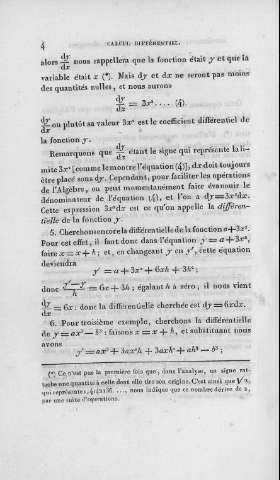 4 CALCUL DIFFÉRENTIEL.
alors dy/dx nous rappellera que la fonction était y et que la
variable était x (*). Mais dy et dx ne seront pas moins
des quantités nulles, et nous aurons
dy/dx = 3x².... (4).
dy/dx ou plutôt sa valeur 3x² est le coefficient différentiel de
la fonction y.
Remarquons que dy/dx étant le signe qui représente la li-
mite 3x² [comme le montre l'équation (4)], dx doit toujours
être placé sous dy. Cependant, pour faciliter les opérations
de l'Algèbre, on peut momentanément faire évanouir le
dénominateur de l'équation (4), et l'on a dy=3x²dx.
Cette expression 3x²dx est ce qu'on appelle la différen-
tielle de la fonction y.
5. Cherchons encore la différentielle de la fonction a+3x².
Pour cet effet, il faut donc dans l'équation y = a+3x²,
faire x = x + h; et, en changeant y en y', cette équation
deviendra
y' = a + 3x² + 6xh + 3h²;
donc y'−y/h = 6x + 3h; égalant h à zéro, il nous vient
dy/dx = 6x: donc la différentielle cherchée est dy = 6xdx.
6. Pour troisième exemple, cherchons la différentielle
de y = ax³ − b³: faisons x = x + h, et substituant nous
avons
y' = ax³ + 3ax²h + 3axh² + ah³ − b³;
(*) Ce n'est pas la première fois que, dans l'analyse, un signe rat-
tache une quantité à celle dont elle tire son origine. C'est ainsi que √2,
qui représente 1,4142136...., nous indique que ce nombre dérive de 2,
par une suite d'opérations.